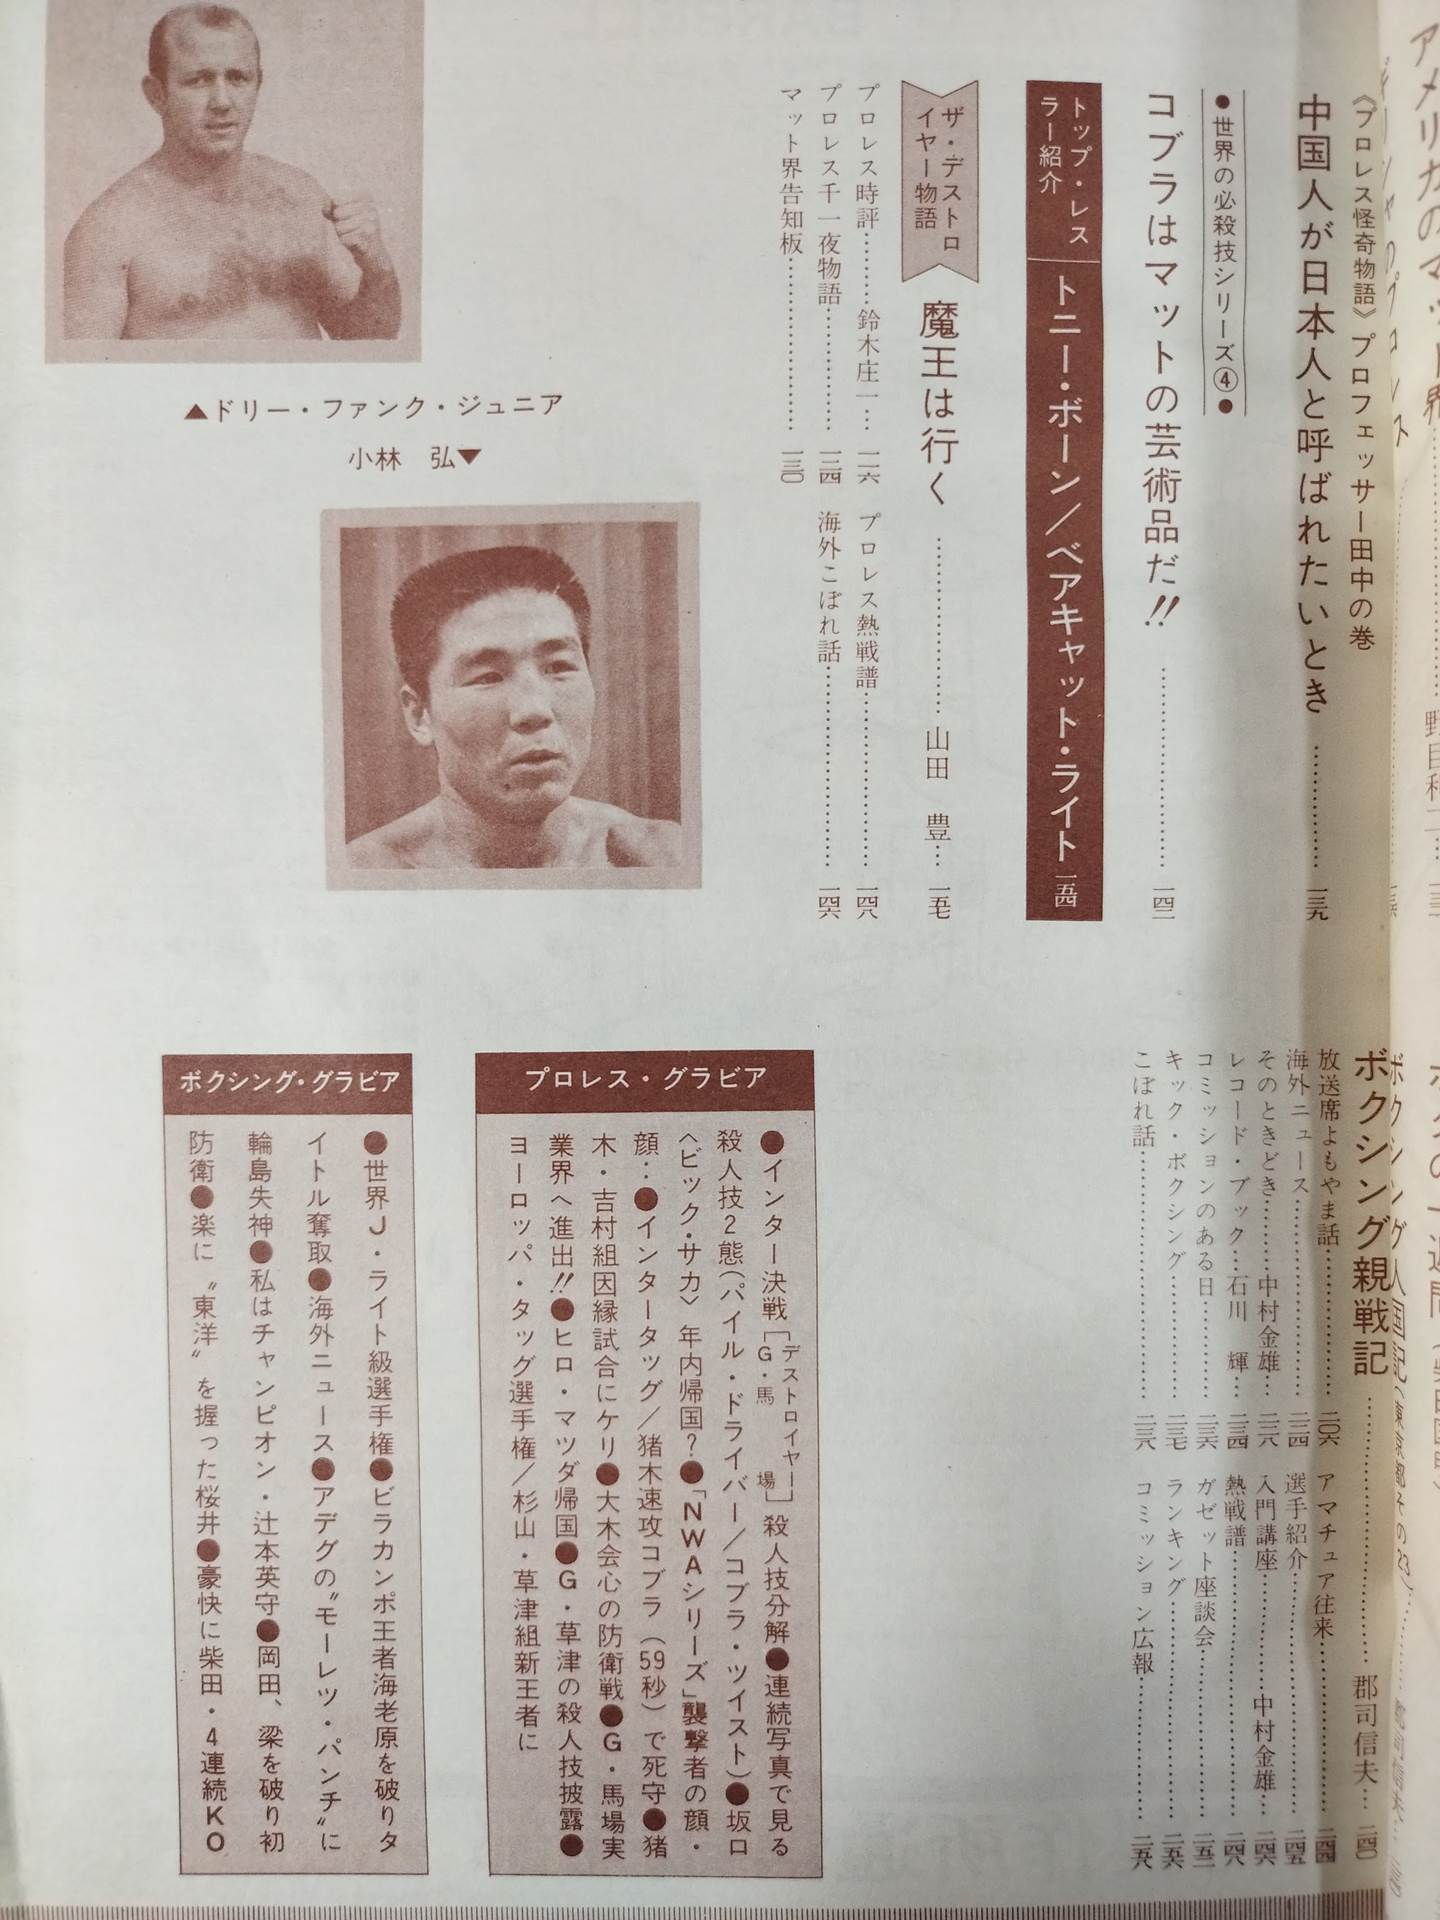 《プロレス怪奇物語》プロフェッサー田中の巻
中国人が日本人と呼ばれたいとき…………一三九
●世界の必殺技シリーズ④●
コブラはマットの芸術品だ!!…………一四二
トップ・レスラー紹介
トニー・ボーン/ベアキャット・ライト 一五四
ザ・デストロイヤー物語
魔王は行く…………山田 豊…一五七
プロレス時評………鈴木庄一…一二六
プロレス熱戦譜…………一四八
プロレス千一夜物語…………一三四
海外こぼれ話…………一四六
マット界告知板…………一三〇
▲ドリー・ファンク・ジュニア
小林 弘▼
ボクシング親戦記…………郡司信夫…二四〇
放送席よもやま話…………二〇六
アマチュア往来…………二四四
海外ニュース…………二二四
選手紹介…………二四五
そのときどき………中村金雄…二二八
入門講座………中村金雄…二四六
レコード・ブック…石川 輝…二三四
熱戦譜…………二四八
コミッションのある日………二三六
ガゼット座談会…………二五二
キック・ボクシング…………二三七
ランキング…………二五六
こぼれ話…………二三八
コミッション広報…………二五八
プロレス・グラビア
●インター決戦[デストロイヤー G・馬場]殺人技分解●連続写真で見る
殺人技2態(パイル・ドライバー/コブラ・ツイスト)●坂口
〈ビック・サカ〉年内帰国?●「NWAシリーズ」襲撃者の顔・
顔…●インタータッグ/猪木速攻コブラ(59秒)で死守●猪
木・吉村組因縁試合にケリ●大木会心の防衛戦●G・馬場実
業界へ進出!!●ヒロ・マツダ帰国●G・草津の殺人技披露●
ヨーロッパ・タッグ選手権/杉山・草津組新王者に
ボクシング・グラビア
●世界J・ライト級選手権●ビラカンポ王者海老原を破りタ
イトル奪取●海外ニュース●アデグの〝モーレツ・パンチ〟に
輪島失神●私はチャンピオン・辻本英守●岡田、梁を破り初
防衛●楽に〝東洋〟を握った桜井●豪快に柴田・4連続KO